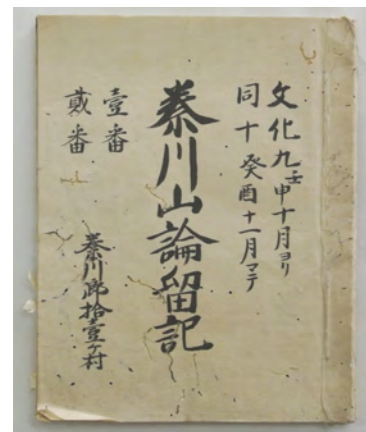 文化九壬申十月ヨリ
同十癸酉十一月マテ
秦川山論留記
壹番
貳番
秦川郷拾壹ヶ村